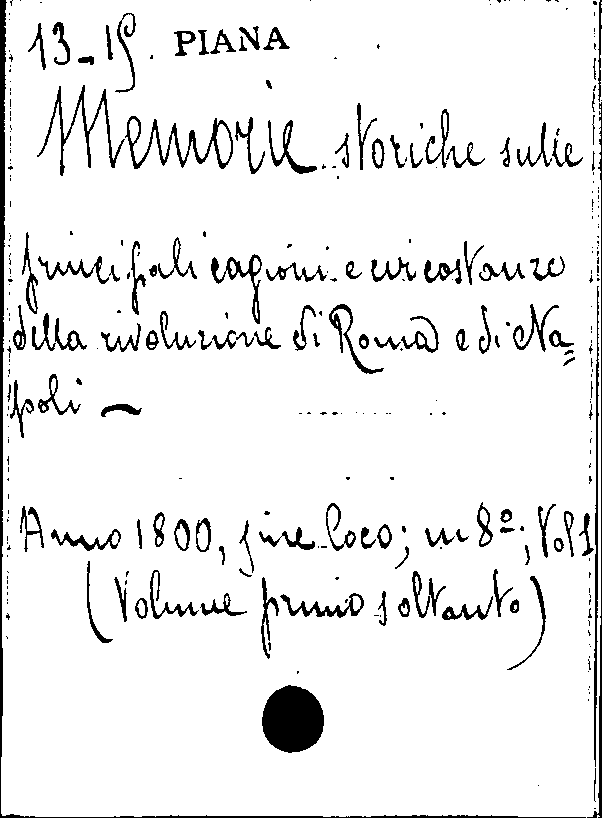 13-15. PIANA
Memorie storiche sulle
principali cagioni e circostanze
della rivoluzione di Roma e di Na=
poli —
Anno 1800, sine loco; in 8º; Vol 1
(Volume primo soltanto)